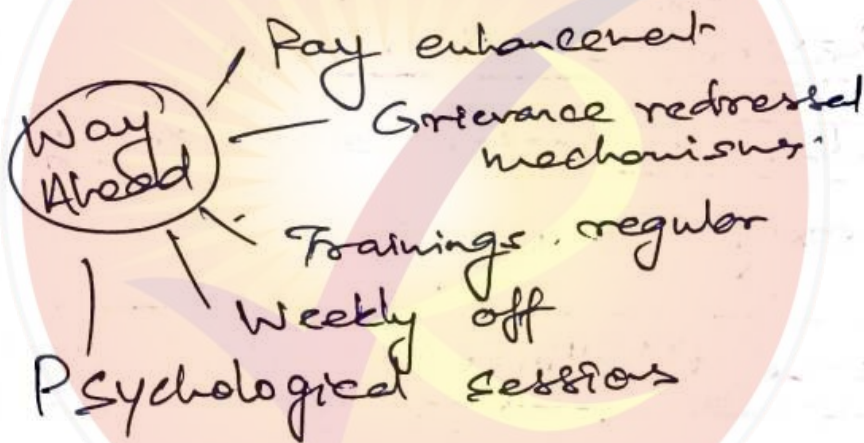 Pay enhancement
Way
Ahead
Grievance redressal
mechanisms.
Trainings regular
Weekly off
Psychological sessions